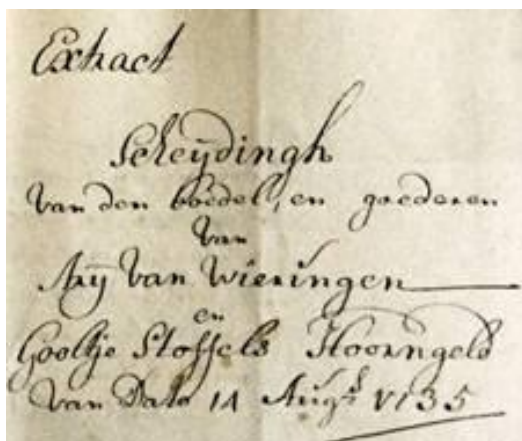 Extract
Scheijdingh
van den boedel, en goederen
van
Arij van Wieringen
en
Gooltje Stoffels Hoorngeld
van Dato 14 Augs 1735